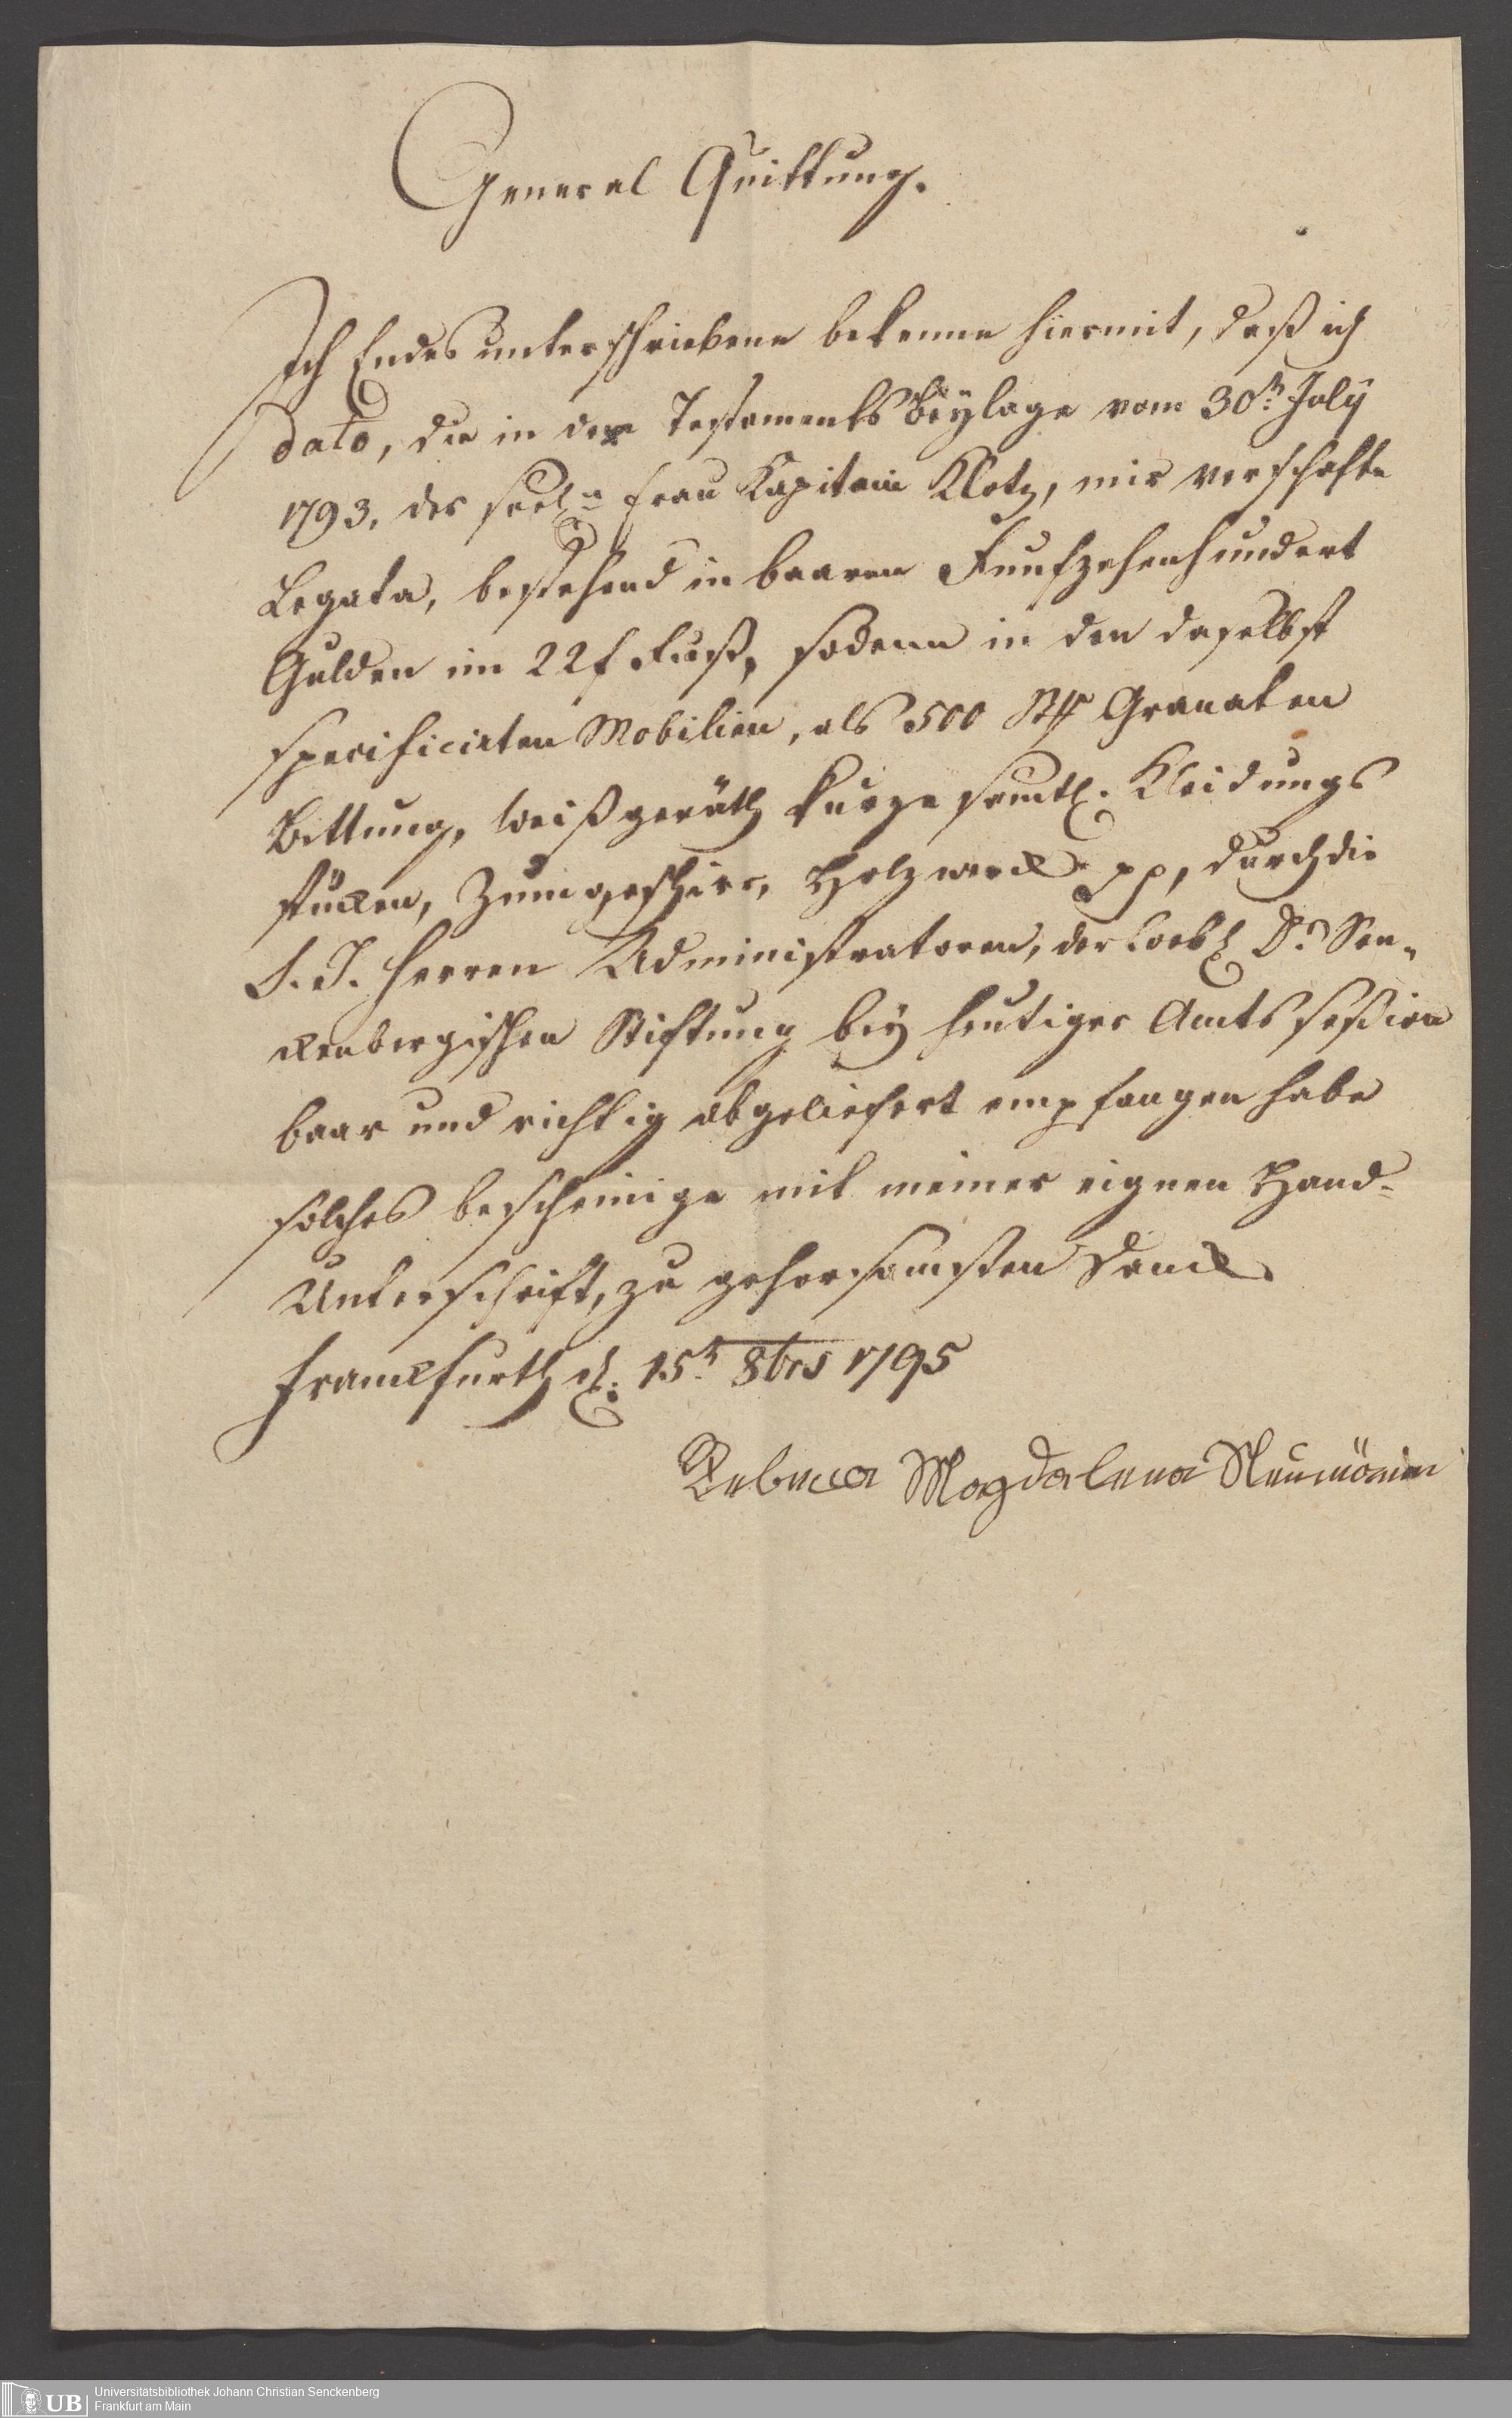 General Quittung.
Ich Endes unterschriebene bekenne hiermit, daß ich
dato, die in der Testaments Beylage vom 30n. July
1793, der seeln Frau Kapitain Klotz, mir verschafte
Legata, bestehend in baaren Funfzehenhundert
Gulden im 22 f Fuß, sodenn in den daselbst
specificirten Mobilien, als 500 Stk Granaten
Bettung, Weißgeräth kurze samtl. Kleidungs
stücken, Zinngeschirr, Holzwerck pp, durch die
S. T. Herren Administratoren, der Loebl Dr. Sen-
ckenbergischen Stiftung bey heutiger Amts session
baar und richtig abgeliefert empfangen habe
solches bescheinige mit meiner eignen Hand-
Unterschrift, zu gehorsamsten Danck
Franckfurth d. 15n. 8brs 1795
Rebecca Magdalena
Universitätsbibliothek Johann Christian Senckenberg
Frankfurt am Main
UB